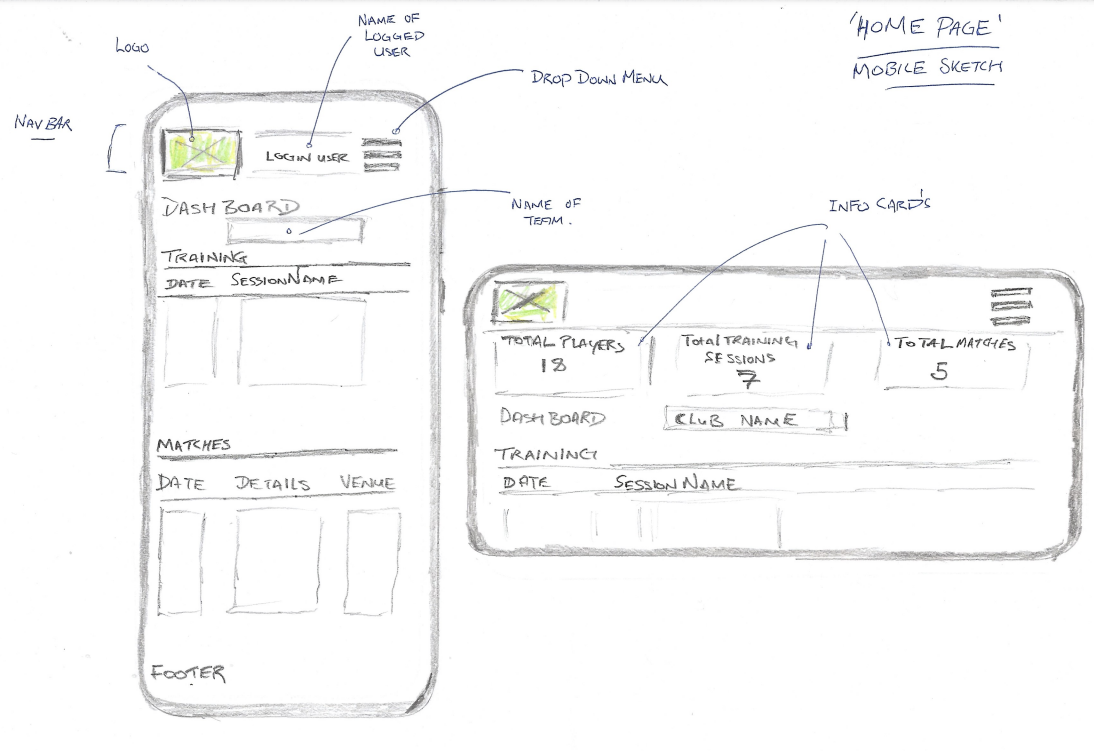 'HOME PAGE'
MOBILE SKETCH
LOGO
NAME OF
LOGGED
USER
DROP DOWN MENU
NAV BAR
LOGIN USER
DASHBOARD
NAME OF
TEAM.
TRAINING
DATE SESSION NAME
MATCHES
DATE DETAILS VENUE
FOOTER
INFO CARD'S
TOTAL PLAYERS
18
Total TRAINING
SESSIONS
7
TOTAL MATCHES
5
DASHBOARD
CLUB NAME
TRAINING
DATE SESSION NAME